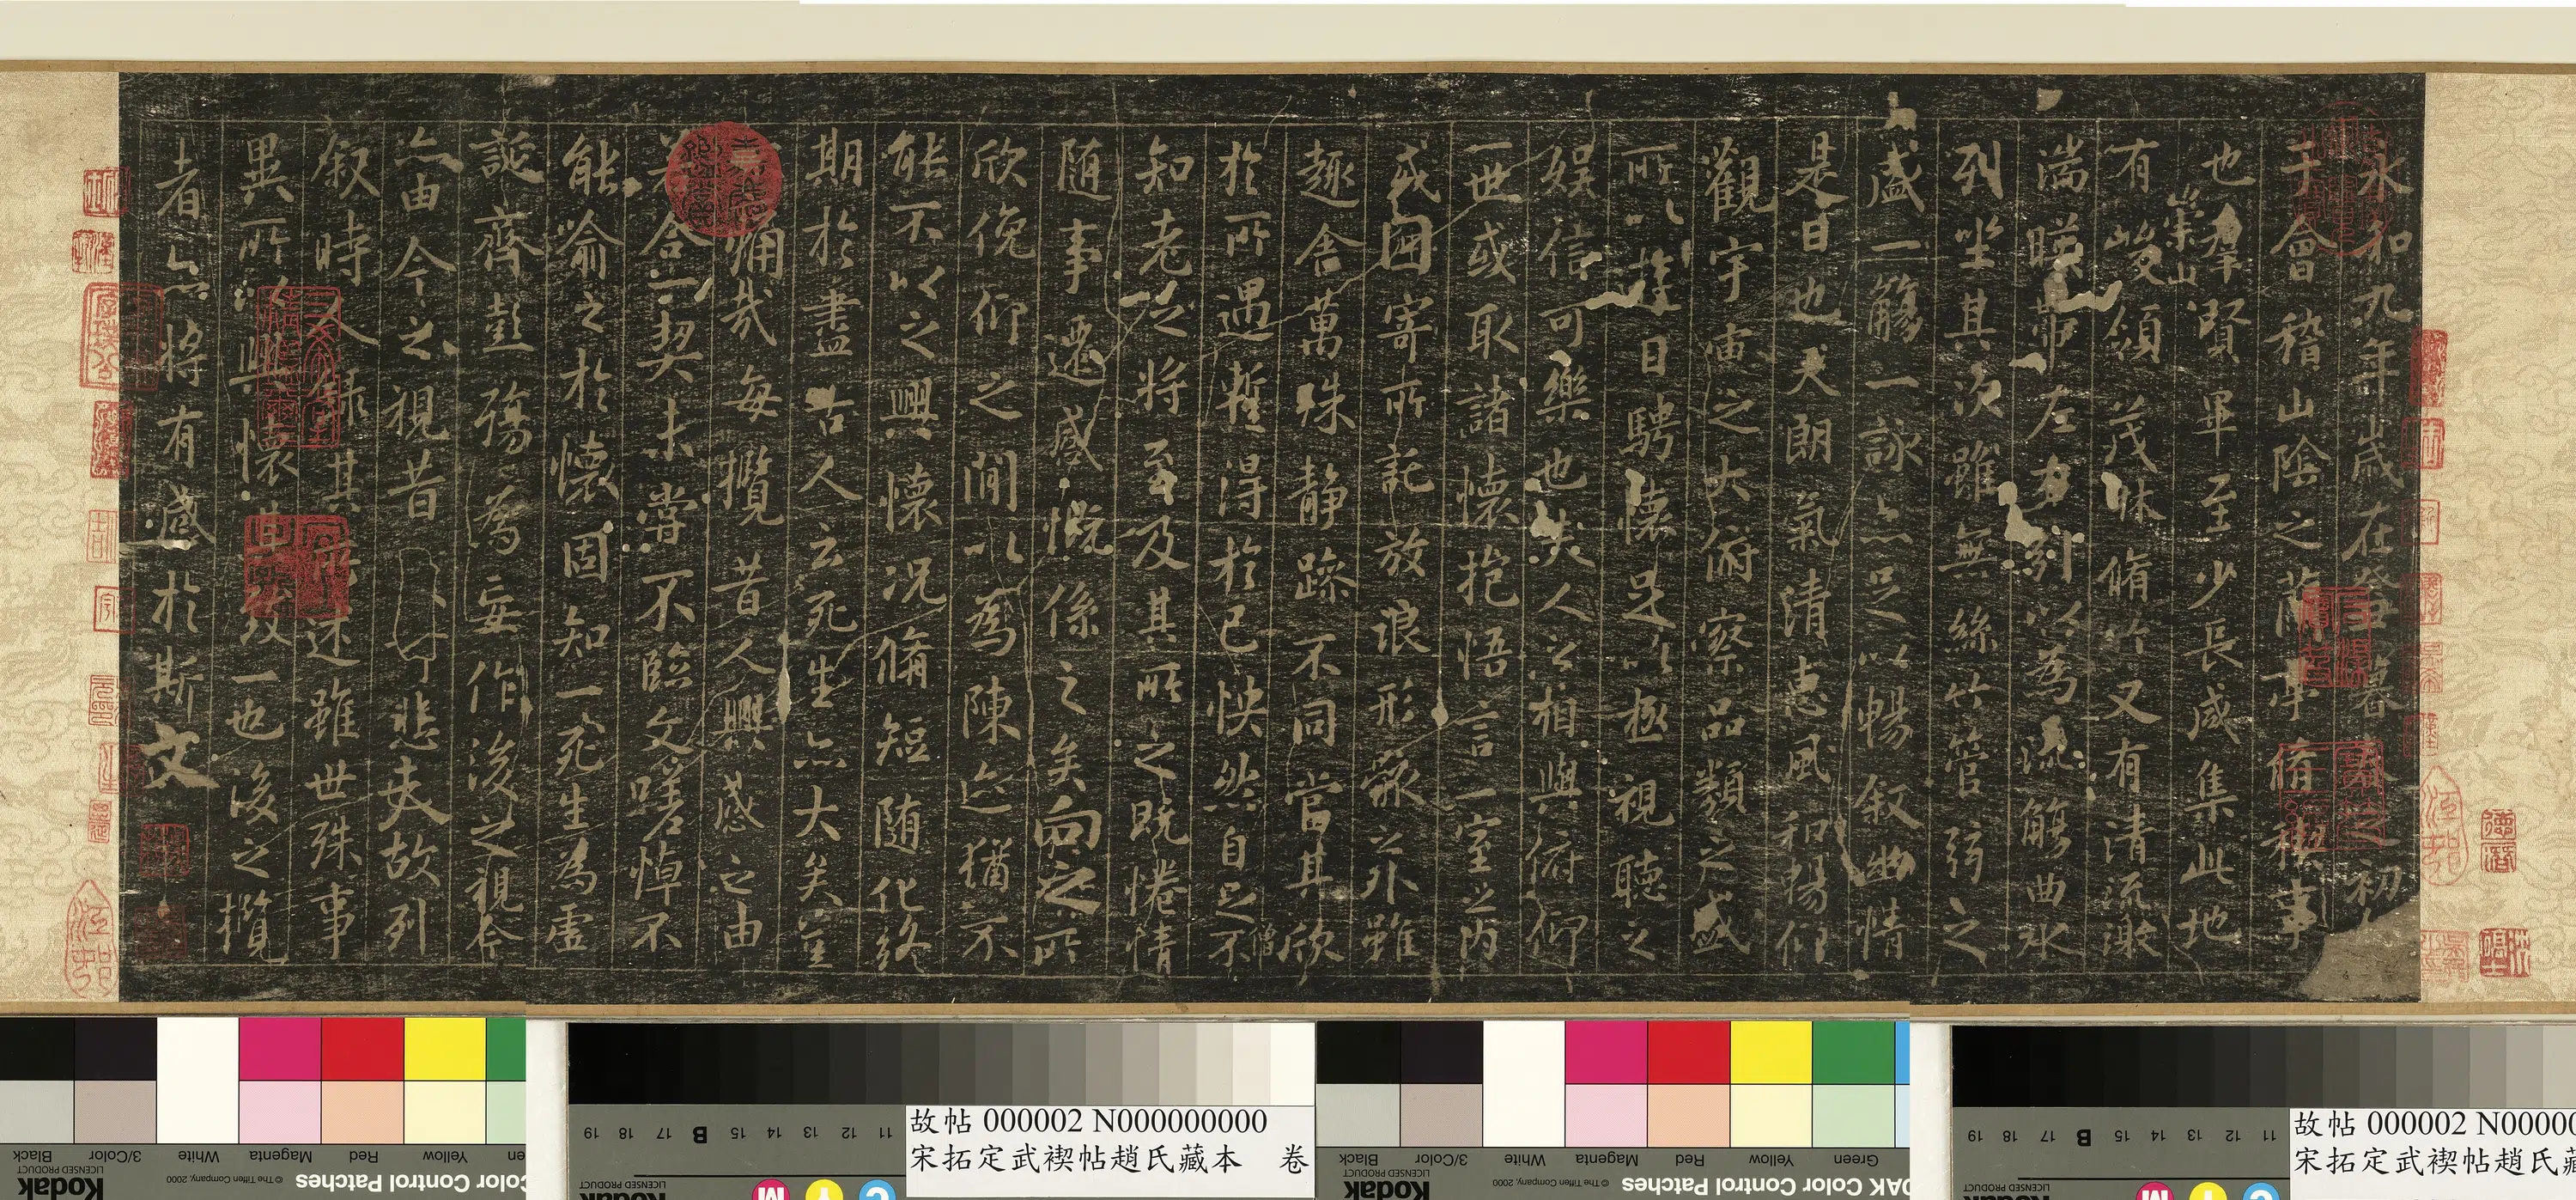 永和九年歲在癸丑暮春之初
于會稽山陰之蘭亭脩禊事
也羣賢畢至少長咸集此地
有崇山峻領茂林脩竹又有清流激
湍暎帶左右引以為流觴曲水
列坐其次雖無絲竹管弦之
盛一觴一詠亦足以暢叙幽情
是日也天朗氣清惠風和暢仰
觀宇宙之大俯察品類之盛
所以遊目騁懷足以極視聽之
娛信可樂也夫人之相與俯仰
一世或取諸懷抱悟言一室之內
或因寄所託放浪形骸之外雖
趣舍萬殊靜躁不同當其欣
於所遇蹔得於己怏然自足不
僧
知老之將至及其所之既惓情
隨事遷感慨係之矣向之所
欣俛仰之閒以為陳迹猶不
能不以之興懷況脩短隨化終
期於盡古人云死生亦大矣豈
痛哉每攬昔人興感之由
若合一契未嘗不臨文嗟悼不
能喻之於懷固知一死生為虛
誕齊彭殤為妄作後之視今
亦由今之視昔悲夫故列
叙時人錄其所述雖世殊事
異所以興懷其致一也後之攬
者亦將有感於斯文
故帖 000002 N000000000
宋拓定武禊帖趙氏藏本 卷
故帖 000002 N00000
宋拓定武禊帖趙氏藏
Black 3/Color White Magenta Red Yellow en
Kodak LICENSED PRODUCT © The Tiffen Company, 2000 Color Control Patches
11 12 13 14 15 B 17 18 19
Kodak LICENSED PRODUCT
Black 3/Color White Magenta Red Yellow Green
Kodak LICENSED PRODUCT © The Tiffen Company, 2000 DAK Color Control Patches
11 12 13 14 15 B 17 18 19
Kodak LICENSED PRODUCT
M Y C
M Y C